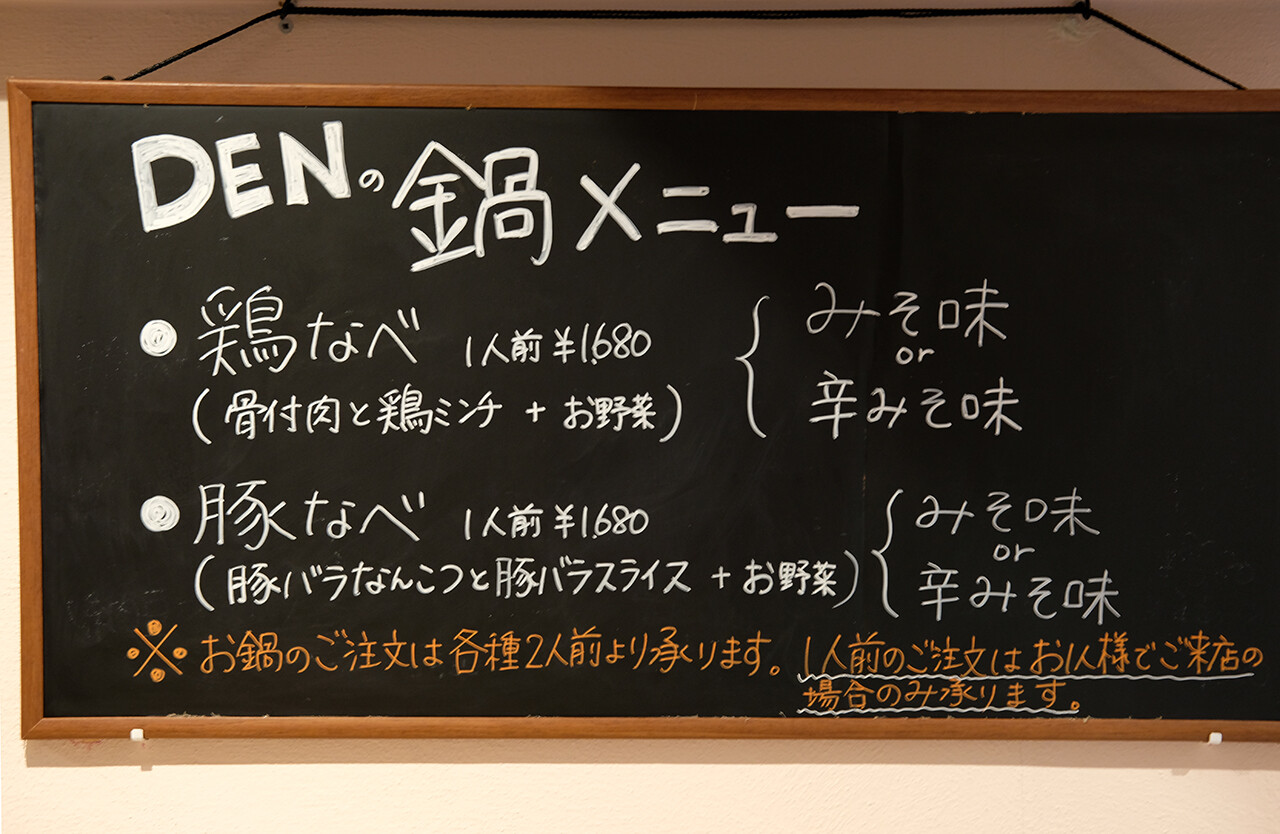 DENの鍋メニュー
●鶏なべ 1人前¥1,680
(骨付肉と鶏ミンチ + お野菜)
みそ味
or
辛みそ味
●豚なべ 1人前¥1,680
(豚バラなんこつと豚バラスライス + お野菜)
みそ味
or
辛みそ味
※お鍋のご注文は各種2人前より承ります。1人前のご注文はお1人様でご来店の
場合のみ承ります。